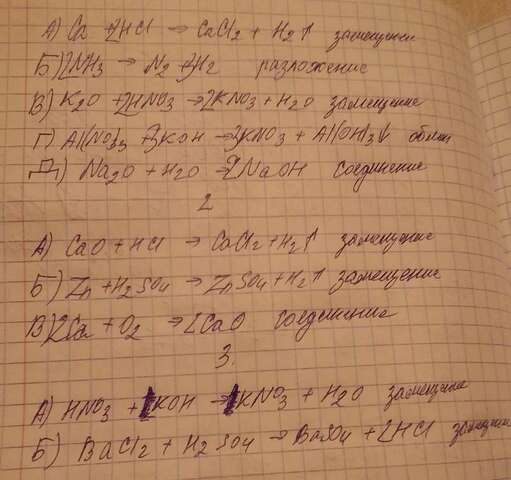 А) Ca + 2HCl → CaCl2 + H2↑ замещение
Б) 2NH3 → N2 + 3H2 разложение
В) K2O + 2HNO3 → 2KNO3 + H2O замещение
Г) Al(NO3)3 + 3KOH → 3KNO3 + Al(OH)3↓ обмен
Д) Na2O + H2O → 2NaOH соединение
2
А) CaO + HCl → CaCl2 + H2↑ замещение
Б) Zn + H2SO4 → ZnSO4 + H2↑ замещение
В) 2Ca + O2 → 2CaO соединение
3.
А) HNO3 + 1KOH → 1KNO3 + H2O замещение
Б) BaCl2 + H2SO4 → BaSO4 + 2HCl замещение